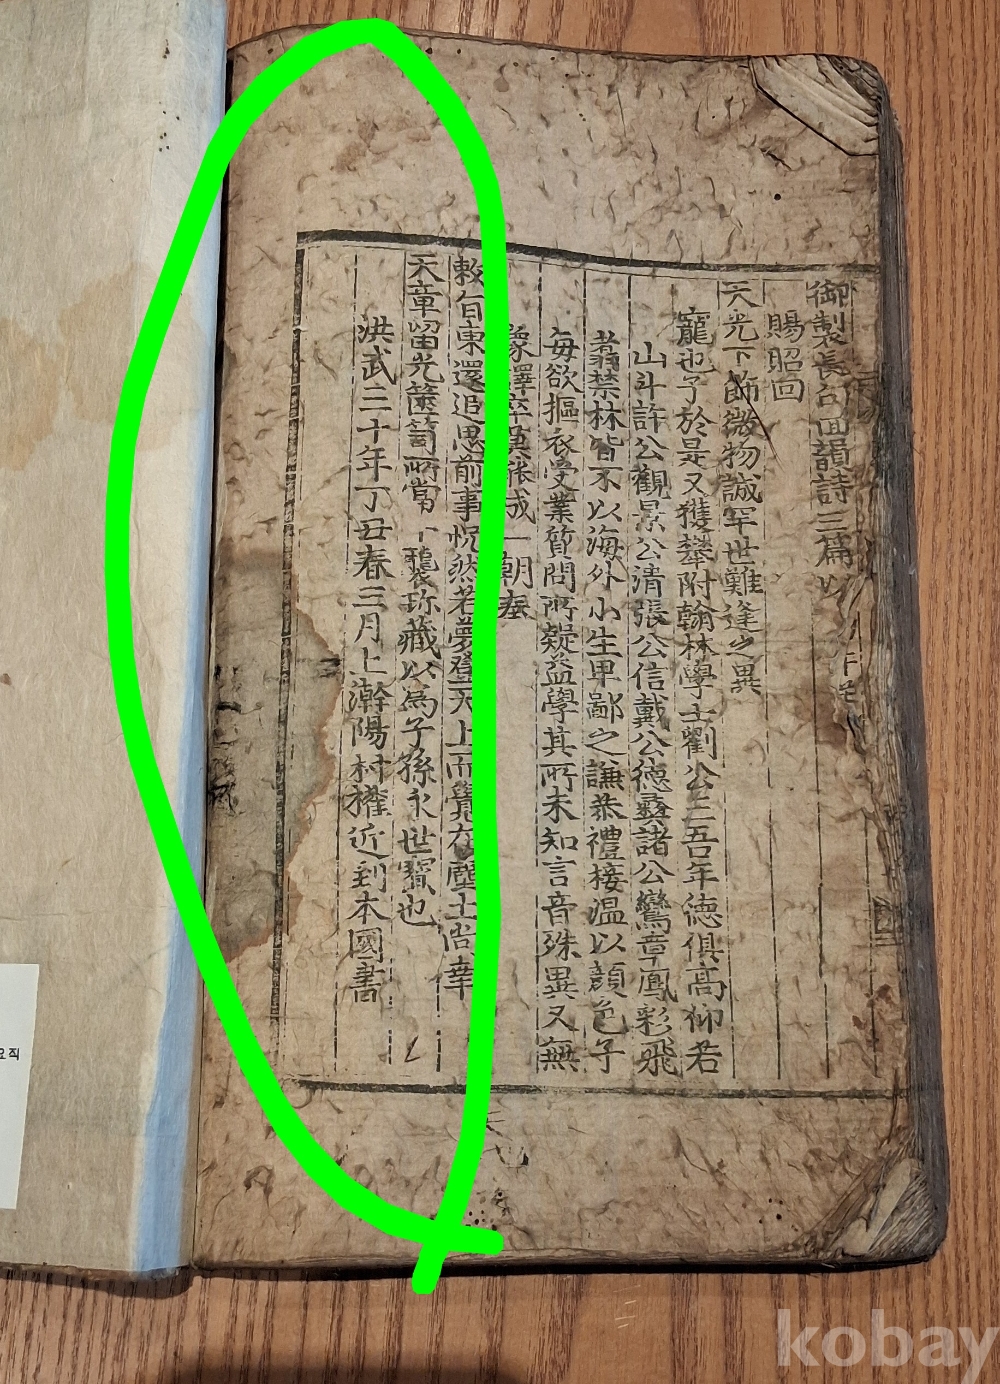 御製長句四韻詩三篇以
賜昭回
天光下飾微物誠罕世難逢之異
寵也予於是又獲攀附翰林學士劉公三吾年德俱高仰若
山斗許公觀景公清張公信戴公德彛諸公鸞章鳳彩飛
翥禁林皆不以海外小生卑鄙之謙恭禮接温以顔色予
每欲摳衣受業質問所疑益學其所未知言音殊異又無
象譯卒莫能成一朝奉
敕旨東還追思前事怳然若夢登天上而覺在塵土尚幸
天章留光篋笥所當 襲珎藏以為子孫永世寳也
洪武三十年丁丑春三月上澣陽村權近到本國書
요직
kobay